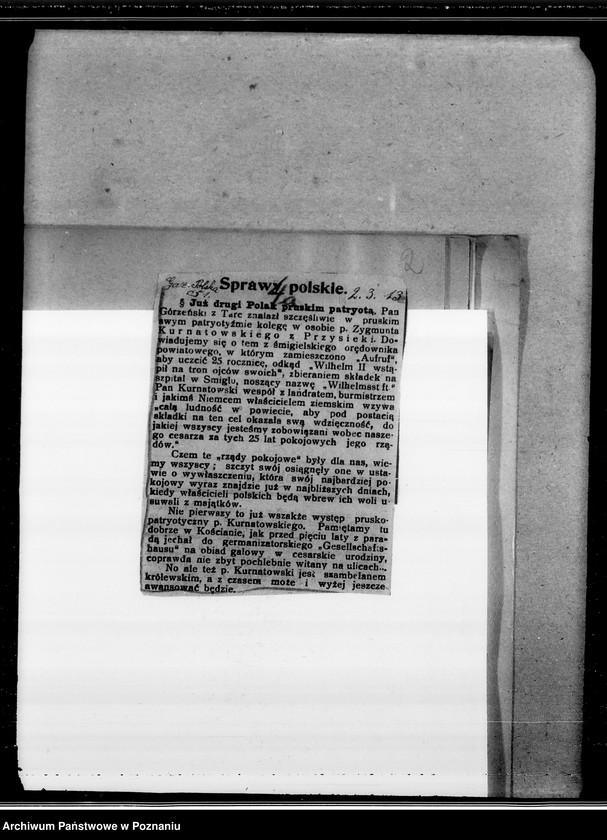 2
Gaz. Polska
51.
Sprawy polskie.
2. 3. 13
§ Już drugi Polak pruskim patryotą. Pan
Górzeński z Tarc znalazł szczęśliwie w pruskim
swym patryotyźmie kolegę w osobie p. Zygmunta
Kurnatowskiego z Przysieki. Do-
wiadujemy się o tem z śmigielskiego orędownika
powiatowego, w którym zamieszczono „Aufruf“,
aby uczcić 25 rocznicę, odkąd „Wilhelm II wstą-
pił na tron ojców swoich“, zbieraniem składek na
szpital w Śmiglu, noszący nazwę „Wilhelmsstift.“
Pan Kurnatowski wespół z landratem, burmistrzem
i jakimś Niemcem właścicielem ziemskim wzywa
„całą ludność w powiecie, aby pod postacią
składki na ten cel okazała swą wdzięczność, do
jakiej wszyscy jesteśmy zobowiązani wobec nasze-
go cesarza za tych 25 lat pokojowych jego rzą-
dów.“
Czem te „rządy pokojowe“ były dla nas, wie-
my wszyscy; szczyt swój osiągnęły one w usta-
wie o wywłaszczeniu, która swój najbardziej po-
kojowy wyraz znajdzie już w najbliższych dniach,
kiedy właścicieli polskich będą wbrew ich woli u-
suwali z majątków.
Nie pierwszy to już wszakże występ prusko-
patryotyczny p. Kurnatowskiego. Pamiętamy tu
dobrze w Kościanie, jak przed pięciu laty z para-
dą jechał do germanizatorskiego „Gesellschafts-
hausu“ na obiad galowy w cesarskie urodziny,
coprawda nie zbyt pochlebnie witany na ulicach...
No ale też p. Kurnatowski jest szambelanem
królewskim, a z czasem może i wyżej jeszcze
awansować będzie.
Archiwum Państwowe w Poznaniu